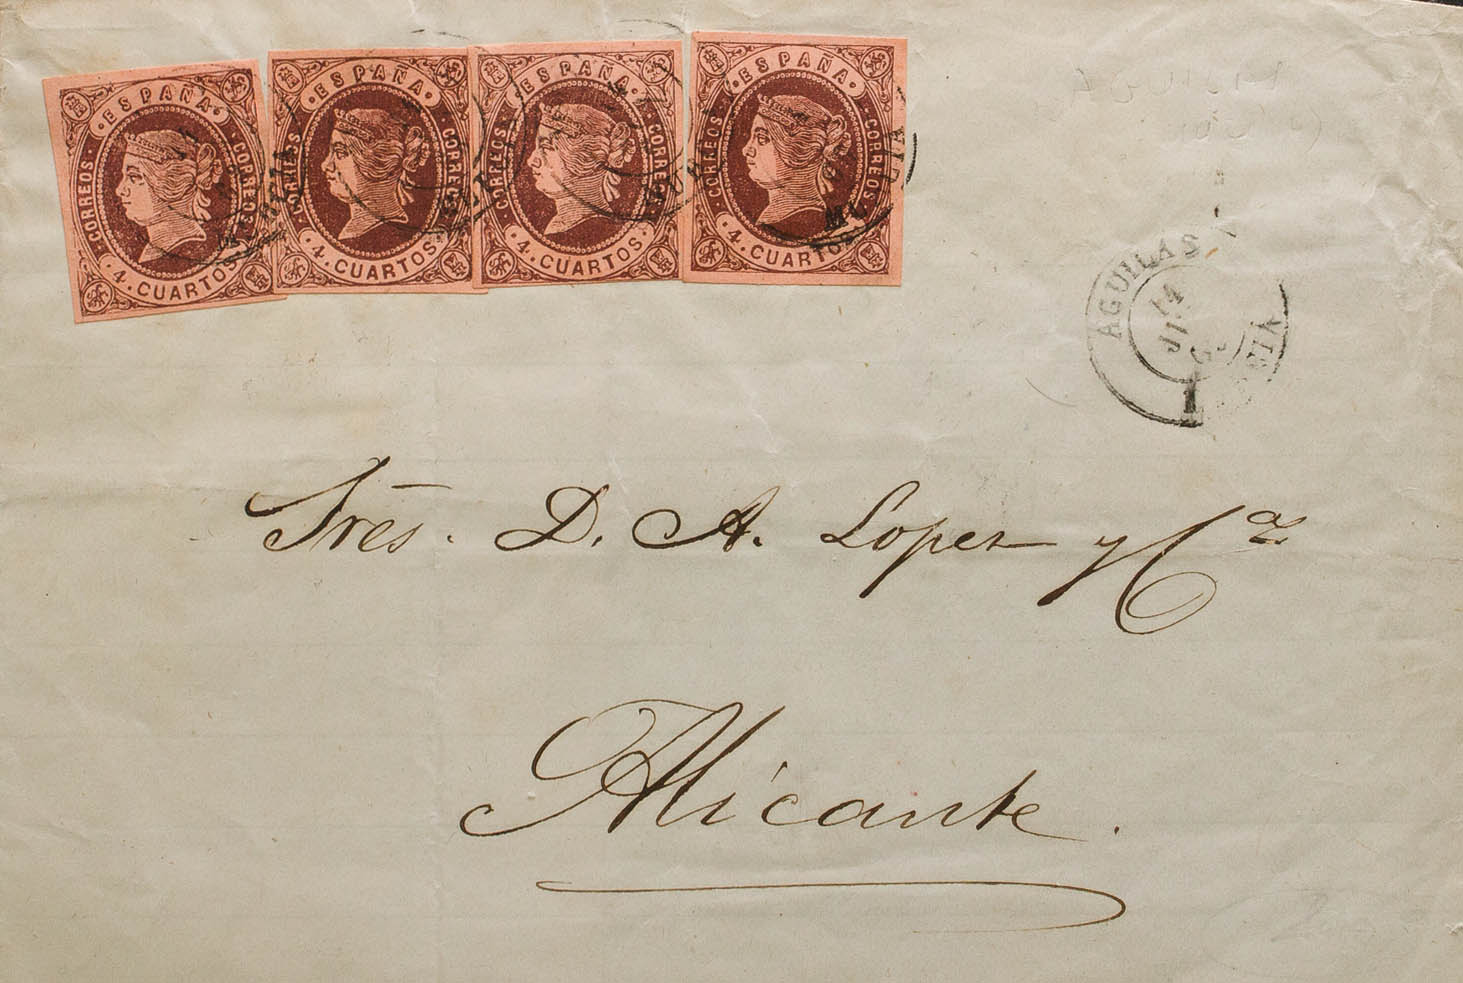 · ESPAÑA ·
CORREOS CORREOS
· 4 · CUARTOS ·
· ESPAÑA ·
CORREOS CORREOS
· 4 · CUARTOS ·
· ESPAÑA ·
CORREOS CORREOS
· 4 · CUARTOS ·
· ESPAÑA ·
CORREOS CORREOS
· 4 · CUARTOS ·
AGUILAS
14
Sres. D. A. Lopez y Cª
Alicante.